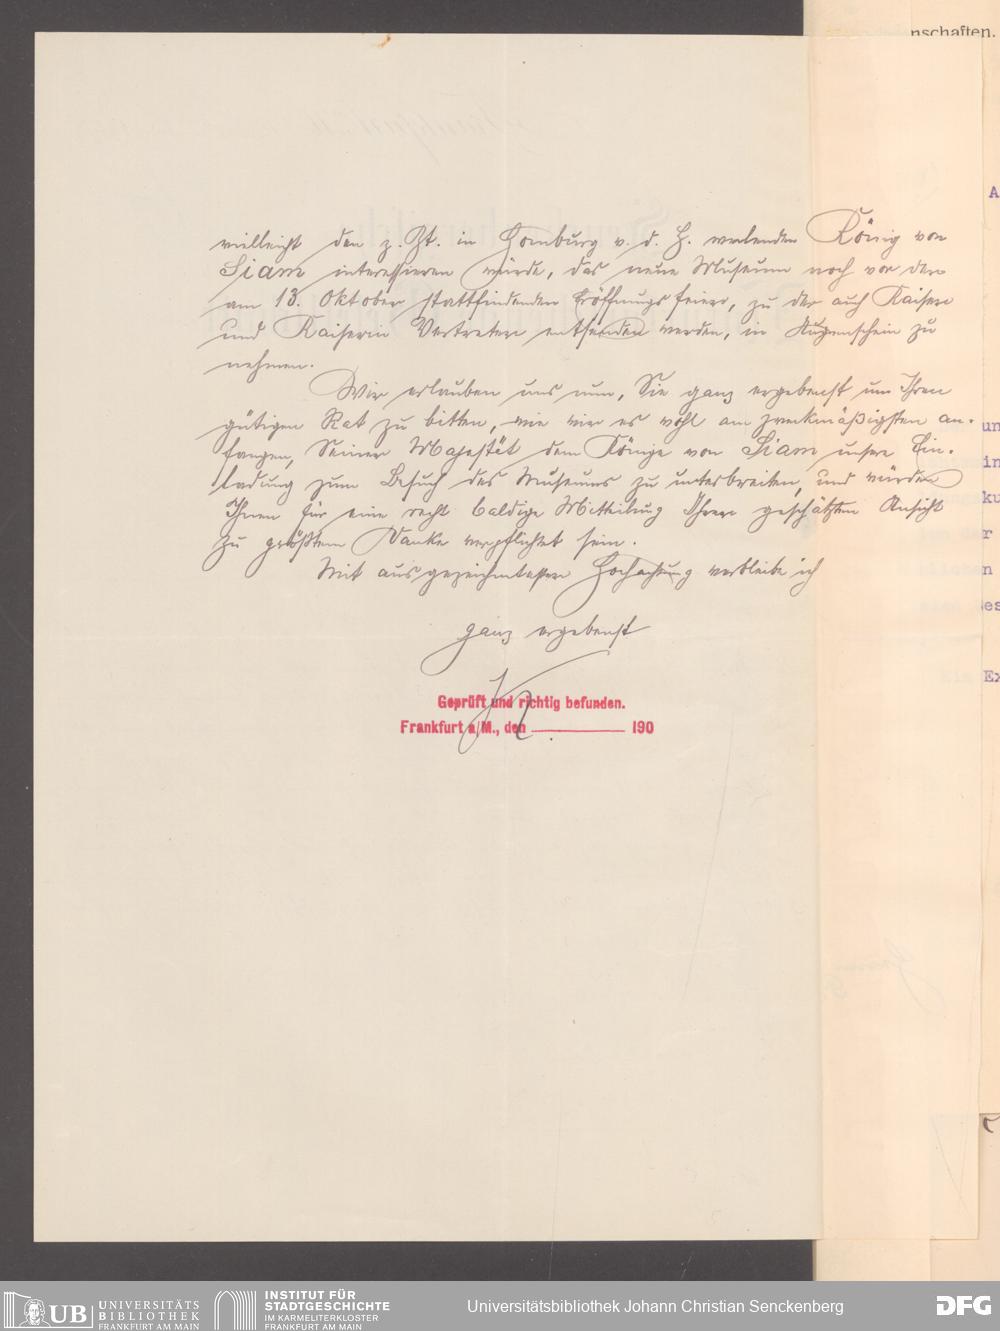 vielleicht den z. Zt. in Homburg v. d. H. weilenden König von
Siam interessieren würde, das neue Museum noch vor der
am 13. Oktober stattfindenden Eröffnungsfeier, zu der auch Kaiser
und Kaiserin Vertreter entsenden werden, in Augenschein zu
nehmen.
Wir erlauben uns nun, Sie ganz ergebenst um Ihren
gütigen Rat zu bitten, wie wir es wohl am zweckmäßigsten an-
fangen, Seiner Majestät dem Könige von Siam unsere Ein-
ladung zum Besuch des Museums zu unterbreiten, und würden
Ihnen für eine recht baldige Mitteilung Ihrer geschätzten Ansicht
zu größtem Danke verpflichtet sein.
Mit ausgezeichnetster Hochachtung verbleibe ich
ganz ergebenst
Geprüft und richtig befunden.
Frankfurt a/M., den 190
nschaften.
A
un
in
ku
r
n
es
Ex
UB UNIVERSITÄTS
BIBLIOTHEK
FRANKFURT AM MAIN
INSTITUT FÜR
STADTGESCHICHTE
IM KARMELITERKLOSTER
FRANKFURT AM MAIN
Universitätsbibliothek Johann Christian Senckenberg
DFG